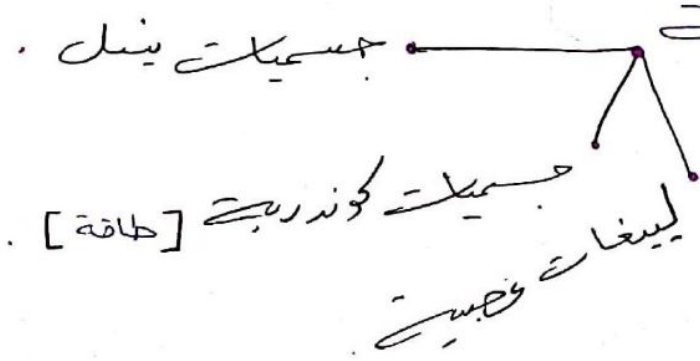 جسميات ينسل .
جسميات كوندرية [طاقة] .
لييفات عصبية .